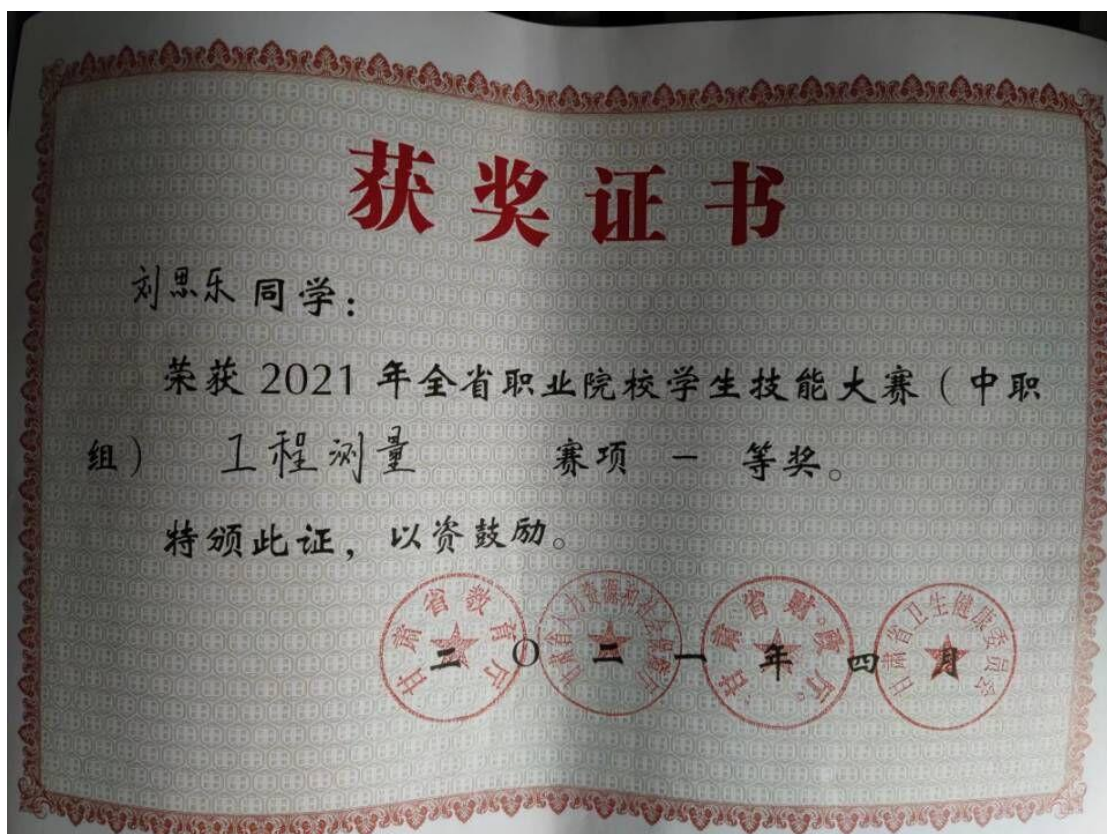 获奖证书
刘思乐同学：
荣获 2021 年全省职业院校学生技能大赛（中职
组） 工程测量 赛项 一 等奖。
特颁此证，以资鼓励。
甘肃省教育厅
甘肃省人力资源和社会保障厅
甘肃省财政厅
甘肃省卫生健康委员会
二〇二一年四月